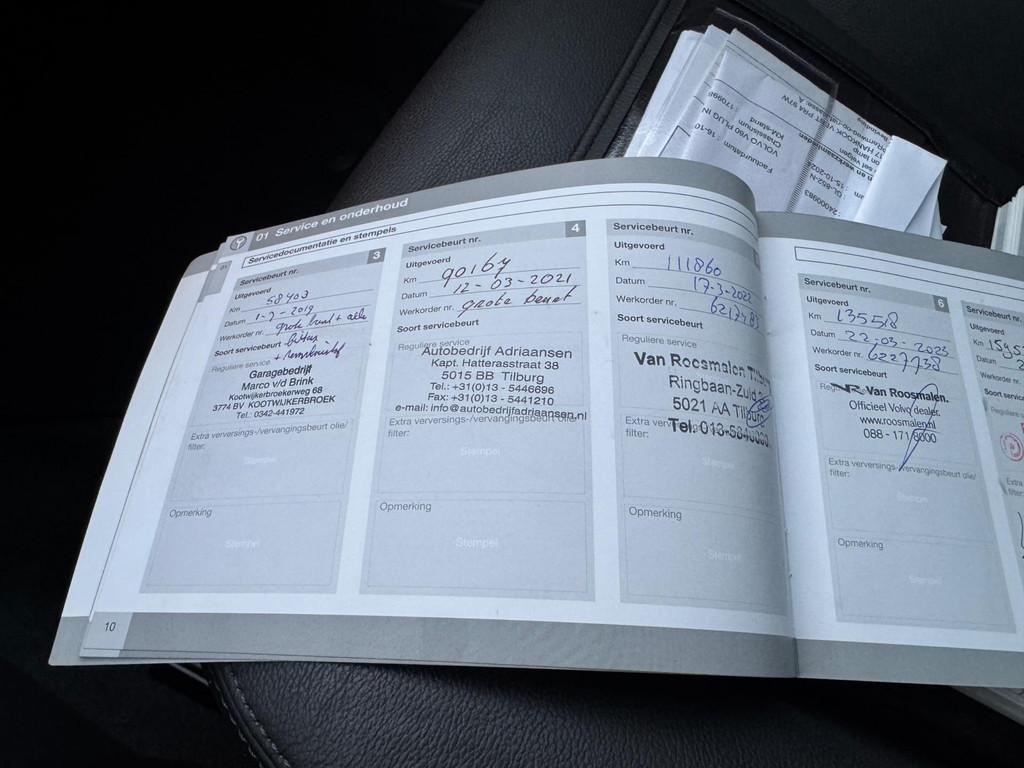 01 Service en onderhoud
Servicedocumentatie en stempels
01
Servicebeurt nr. 3
Uitgevoerd
Km 58403
Datum 1-7-2019
Werkorder nr. grote beurt + alle
Soort servicebeurt
Reguliere service
Garagebedrijf
Marco v/d Brink
Kootwijkerbroekerweg 68
3774 BV KOOTWIJKERBROEK
Tel.: 0342-441972
Extra verversings-/vervangingsbeurt olie/
filter:
Stempel
Opmerking
Stempel
10
Servicebeurt nr. 4
Uitgevoerd
Km 90167
Datum 12-03-2021
Werkorder nr. grote beurt
Soort servicebeurt
Reguliere service
Autobedrijf Adriaansen
Kapt. Hatterasstraat 38
5015 BB Tilburg
Tel.: +31(0)13 - 5446696
Fax: +31(0)13 - 5441210
e-mail: info@autobedrijfadriaansen.nl
Extra verversings-/vervangingsbeurt olie/
filter:
Stempel
Opmerking
Stempel
Servicebeurt nr.
Uitgevoerd
Km 111860
Datum 17-3-2022
Werkorder nr. 6217483
Soort servicebeurt
Van Roosmalen Tilburg
Ringbaan-Zuid
5021 AA Tilburg
Tel. 013-
filter:
Stempel
Opmerking
Stempel
Servicebeurt nr. 6
Uitgevoerd
Km 135518
Datum 22-03-2023
Werkorder nr. 6227738
Soort servicebeurt
Van Roosmalen.
Officieel Volvo dealer.
www.roosmalen.nl
088 - 171 8000
Extra verversings-/vervangingsbeurt olie/
filter:
Stempel
Opmerking
Stempel
Servicebeurt nr.
Uitgevoerd
Km
Datum
Werkorder
Soort servic
Reguliere
Extra
filter:
Factuurdatum : 16-10
VOLVO V60 PLUG IN
Chassisnum
KM-stand : 17099
24000983
15-10-202
GL-852-N